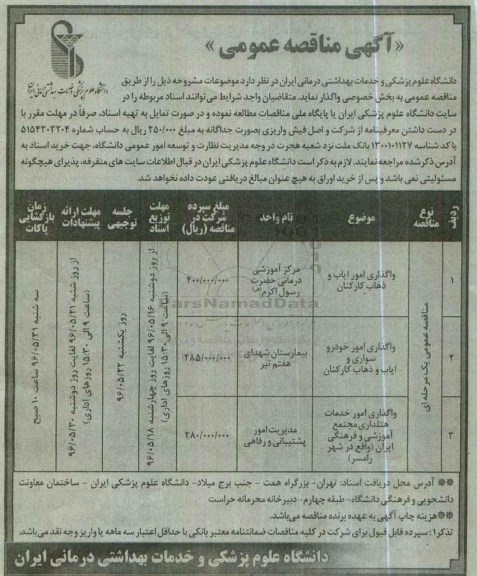 «آگهی مناقصه عمومی»
دانشگاه علوم پزشکی و خدمات بهداشتی درمانی ایران در نظر دارد موضوعات مشروحه ذیل را از طریق
مناقصه عمومی به بخش خصوصی واگذار نماید. متقاضیان واجد شرایط می‌توانند اسناد مربوطه را در
سایت دانشگاه علوم پزشکی ایران یا پایگاه ملی مناقصات مطالعه نموده و در صورت تمایل به تهیه اسناد، صرفاً در مهلت مقرر با
در دست داشتن معرفینامه از شرکت و اصل فیش واریزی بصورت جداگانه به مبلغ ۲۵۰/۰۰۰ ریال به حساب شماره ۵۱۵۴۳۰۳۲۰۴
با کد شناسه ۱۳۰۰۱۰۱۱۲۷ بانک ملت نزد شعبه هجرت در وجه مدیریت نظارت و توسعه امور عمومی دانشگاه، جهت خرید اسناد به
آدرس ذکر شده مراجعه نمایند. لازم به ذکر است دانشگاه علوم پزشکی ایران در قبال اطلاعات سایت های متفرقه، پذیرای هیچگونه
مسئولیتی نمی باشد و پس از خرید اوراق به هیچ عنوان مبالغ دریافتی عودت داده نخواهد شد.
ردیف
نوع مناقصه
موضوع
نام واحد
مبلغ سپرده شرکت در مناقصه (ریال)
مهلت توزیع اسناد
جلسه توجیهی
مهلت ارائه پیشنهادات
زمان بازگشایی پاکات
مناقصه عمومی یک مرحله ای
۱
واگذاری امور ایاب و ذهاب کارکنان
مرکز آموزشی درمانی حضرت رسول اکرم
۴۰۰/۰۰۰/۰۰۰
۲
واگذاری امور خودرو سواری و ایاب و ذهاب کارکنان
بیمارستان شهدای هفتم تیر
۲۸۵/۰۰۰/۰۰۰
۳
واگذاری امور خدمات هتلداری مجتمع آموزشی و فرهنگی ایران (واقع در شهر رامسر)
مدیریت امور پشتیبانی و رفاهی
۲۸۰/۰۰۰/۰۰۰
از روز دوشنبه ۹۶/۰۵/۱۶ لغایت روز چهارشنبه ۹۶/۰۵/۱۸
(ساعت ۹ الی ۱۵:۳۰ روزهای اداری)
روز یکشنبه ۹۶/۰۵/۲۲
از روز شنبه ۹۶/۰۵/۲۱ لغایت روز دوشنبه ۹۶/۰۵/۳۰
(ساعت ۹ الی ۱۵:۳۰ روزهای اداری)
سه شنبه ۹۶/۰۵/۳۱ ساعت ۱۰ صبح
ParsNamadData
** آدرس محل دریافت اسناد: تهران- بزرگراه همت - جنب برج میلاد- دانشگاه علوم پزشکی ایران - ساختمان معاونت
دانشجویی و فرهنگی دانشگاه- طبقه چهارم- دبیرخانه محرمانه حراست
**هزینه چاپ آگهی به عهده برنده مناقصه می‌باشد.
تذکر۱: سپرده قابل قبول برای شرکت در کلیه مناقصات ضمانتنامه معتبر بانکی با حداقل اعتبار سه ماهه یا واریز وجه نقد می‌باشد.
دانشگاه علوم پزشکی و خدمات بهداشتی درمانی ایران